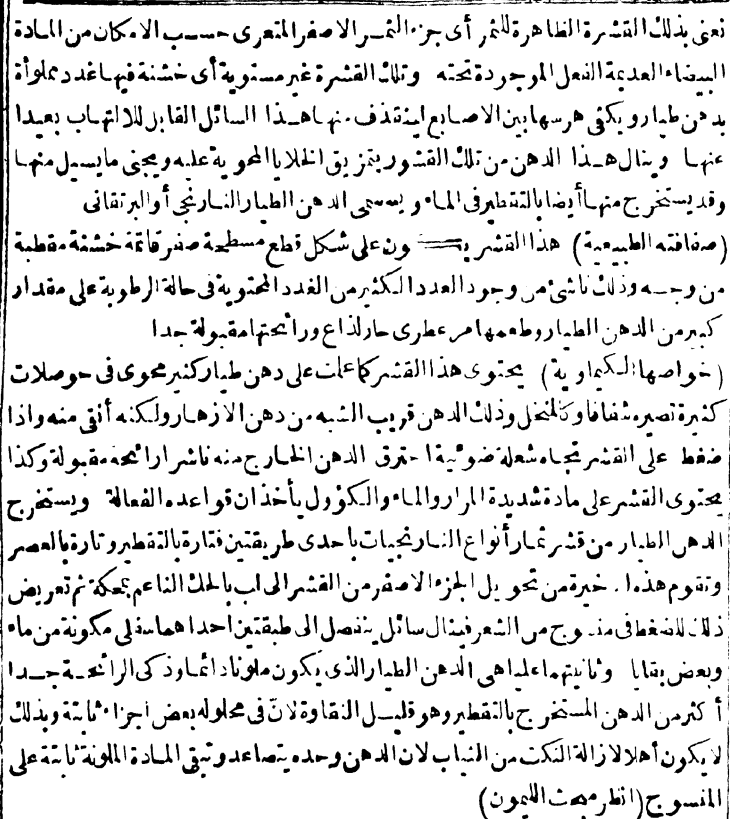 نعنى بذلك القشرة الظاهرة للثمر أى جزء الثمر الاصفر المتعرى حسب الامكان من المادة
البيضاء العديمة الفعل الموجودة تحته وتلك القشرة غير مستوية أى خشنة فيها غدد مملوأة
بدهن طيار ويكفى هرسها بين الاصابع لينقذف منها هذا السائل القابل للالتهاب بعيدا
عنها وينال هذا الدهن من تلك القشور بتمزيق الخلايا المحوية عليه ويجنى مايسيل منها
وقد يستخرج منها أيضا بالتقطير فى الماء ويسمى الدهن الطيار النارنجى أو البرتقانى
(صفاقته الطبيعية) هذا القشر يكون على شكل قطع مسطحة صفر قاتمة خشنة مقطبة
من وجه وذلك ناشئ من وجود العدد الكثير من الغدد المحتوية فى حالة الرطوبة على مقدار
كبير من الدهن الطيار وطعمها مر عطرى حار لذاع ورائحتها مقبولة جدا
(خواصها الكيماوية) يحتوى هذا القشر كما علمت على دهن طيار كثير محوى فى حوصلات
كثيرة تصيره شفافا وكالمنخل وذلك الدهن قريب الشبه من دهن الازهار ولكنه أنقى منه واذا
ضغط على القشر تجاه شعلة ضوئية احترق الدهن الخارج منه ناشرا رائحة مقبولة وكذا
يحتوى القشر على مادة شديدة المرار والماء والكؤول يأخذان قواعده الفعالة ويستخرج
الدهن الطيار من قشر ثمار أنواع النارنجيات باحدى طريقتين فتارة بالتقطير وتارة بالعصر
وتقوم هذه الاخيرة من تحويل الجزء الاصفر من القشر الى لب بالحك الناعم بمحكة ثم تعريض
ذلك للضغط فى منسوج من الشعر فينال سائل ينفصل الى طبقتين احداهما سفلى مكونة من ماء
وبعض بقايا وثانيتهما عليا هى الدهن الطيار الذى يكون ملونا دائما وذكى الرائحة جدا
أكثر من الدهن المستخرج بالتقطير وهو قليل النقاوة لان فى محلوله بعض اجزاء ثابتة وبذلك
لا يكون أهلا لازالة النكت من الثياب لان الدهن وحده يتصاعد وتبقى المادة الملونة ثابتة على
المنسوج (انظر مبحث الليمون)